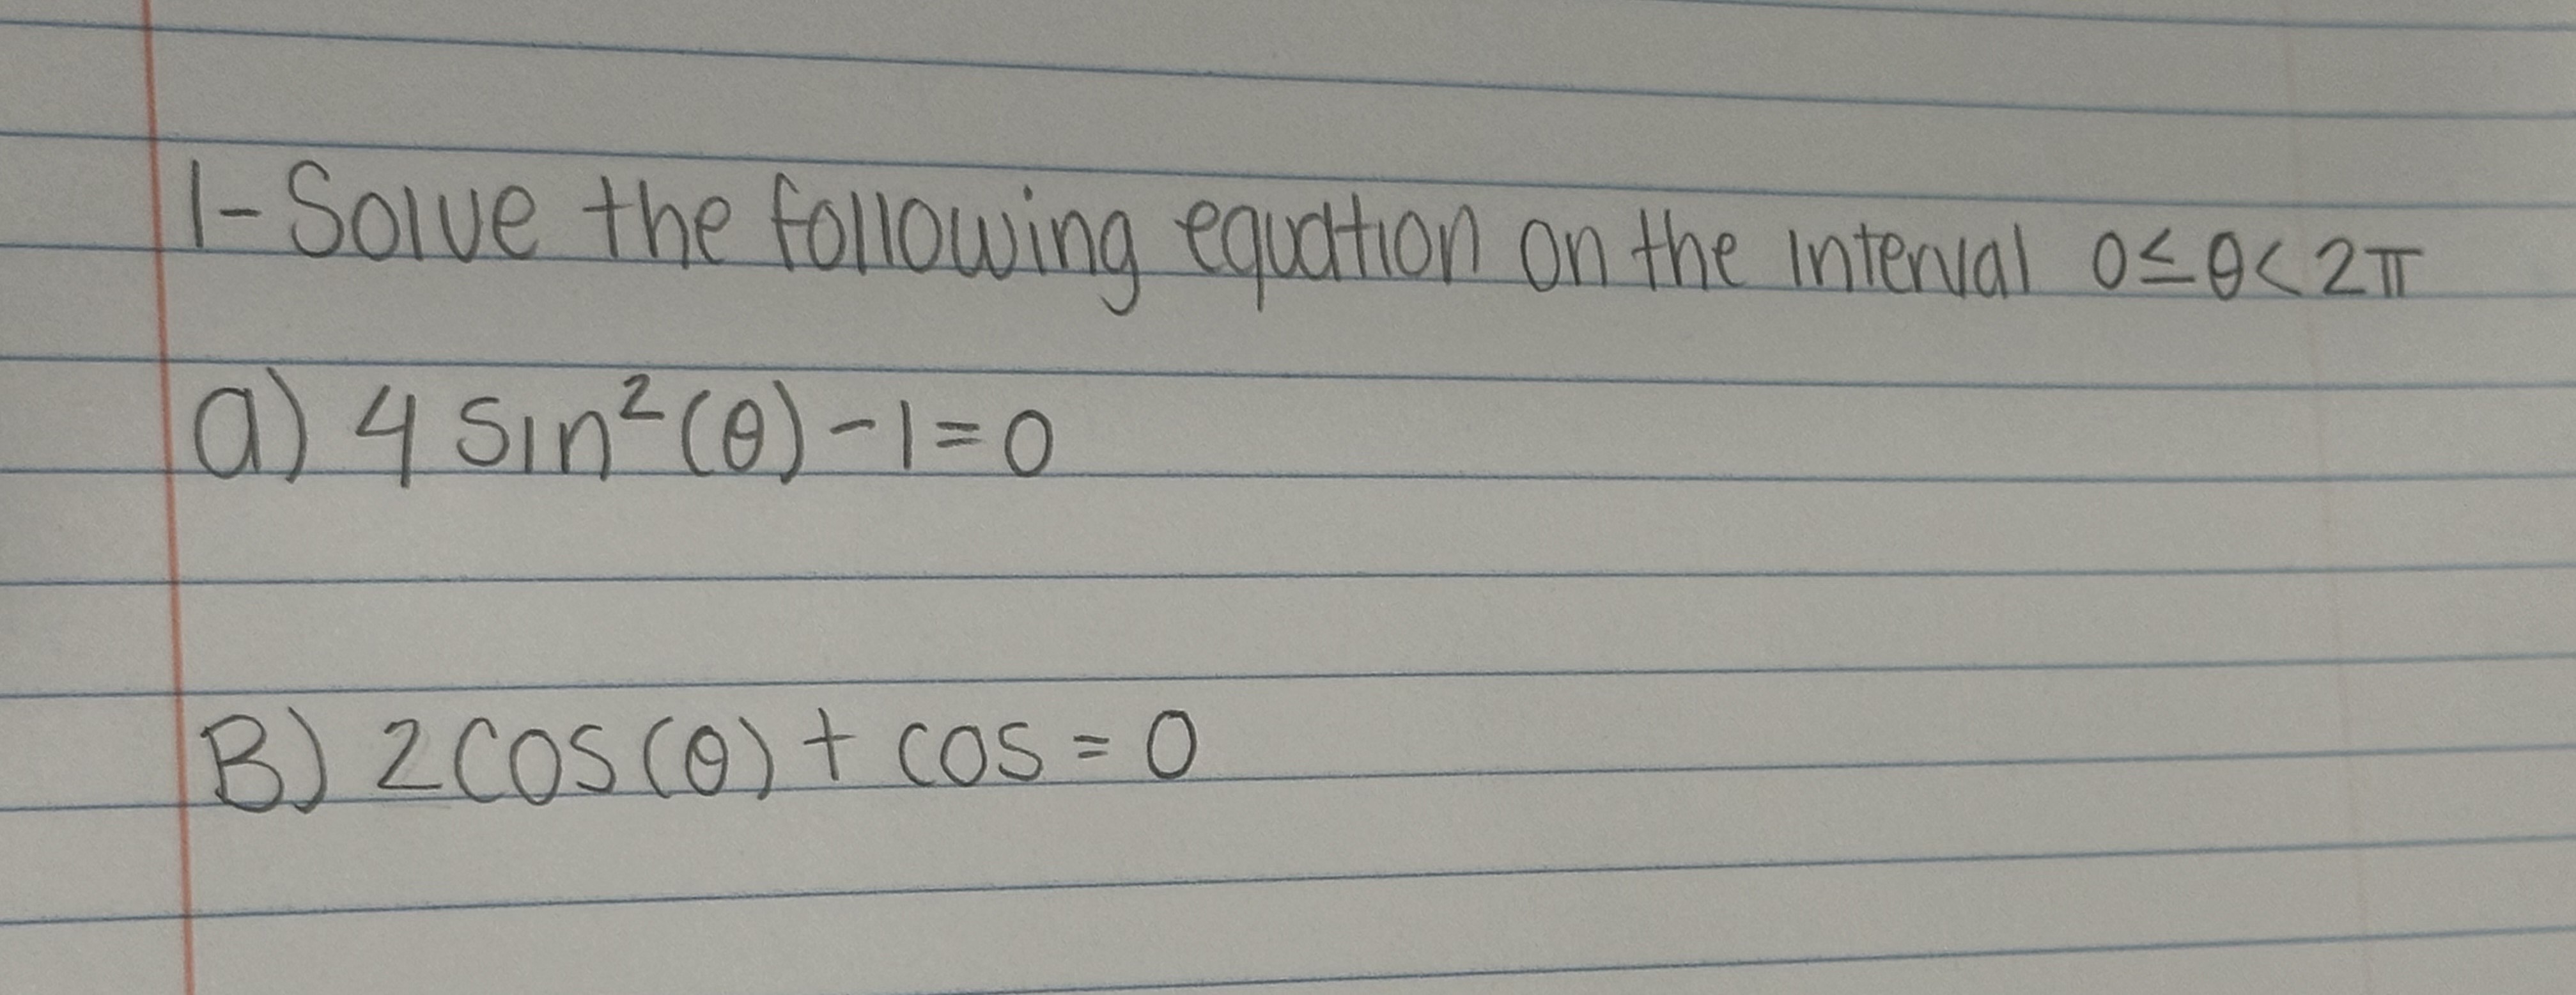 1-Solve the following equation on the interval 0≤θ<2π
a) 4 sin²(θ)-1=0
B) 2cos(θ) + cos = 0